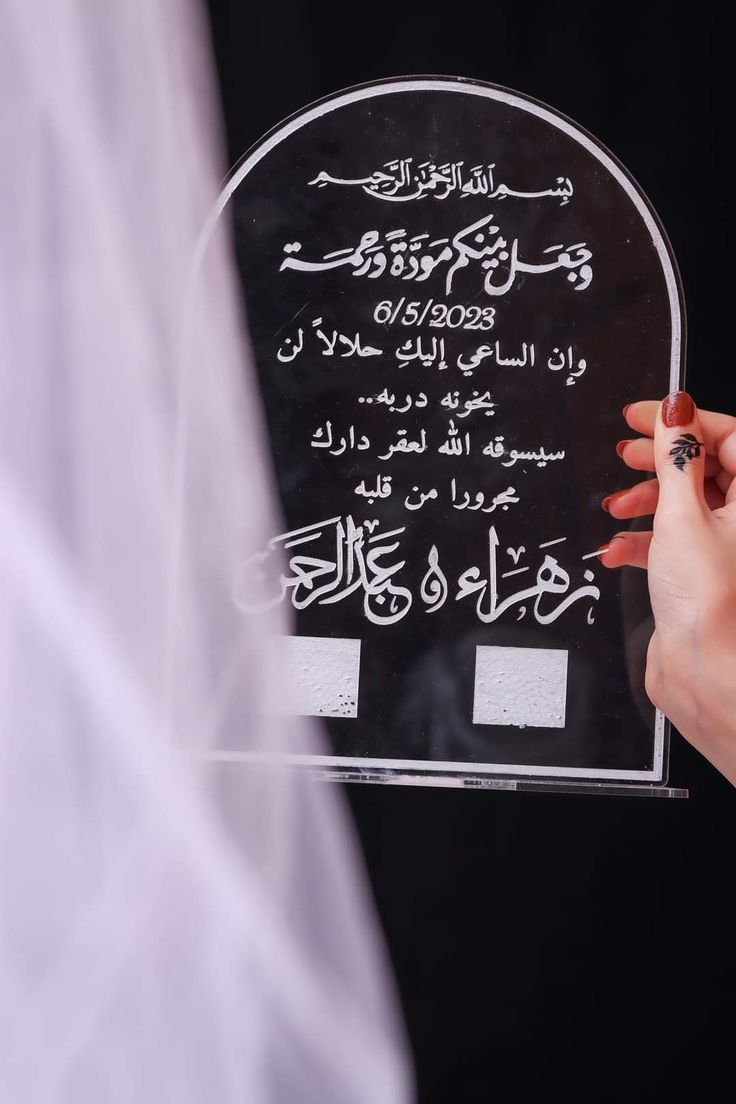 بِسْمِ اللَّهِ الرَّحْمَٰنِ الرَّحِيمِ
وَجَعَلَ بَيْنَكُم مَوَدَّةً وَرَحْمَة
6/5/2023
وإن الساعي إليكِ حلالاً لن
يخونه دربه..
سيسوقه الله لعقر دارك
مجرورا من قلبه
زهراء و عبدالرحمن